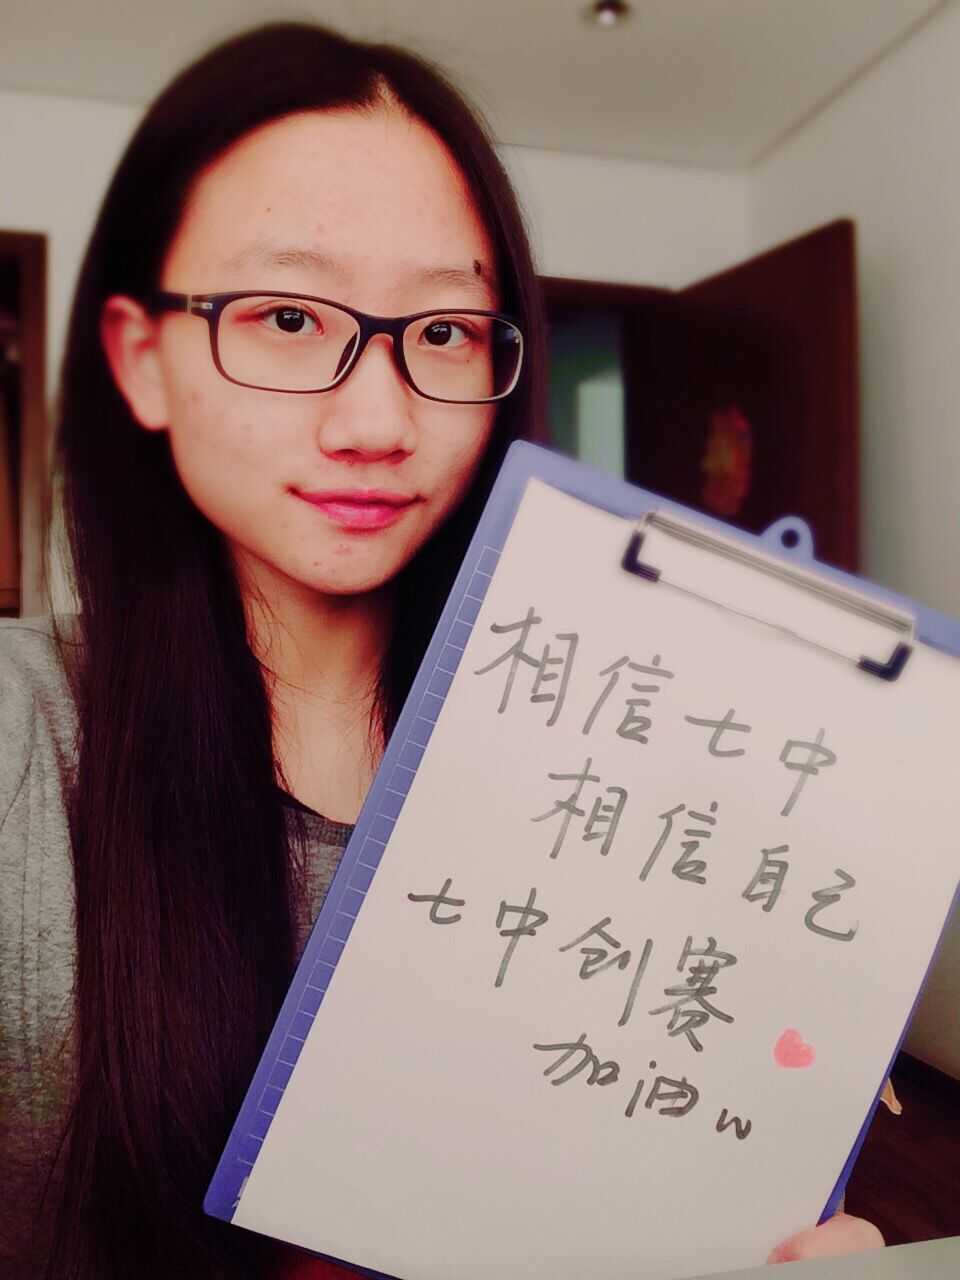 相信七中
相信自己
七中创赛
加油w